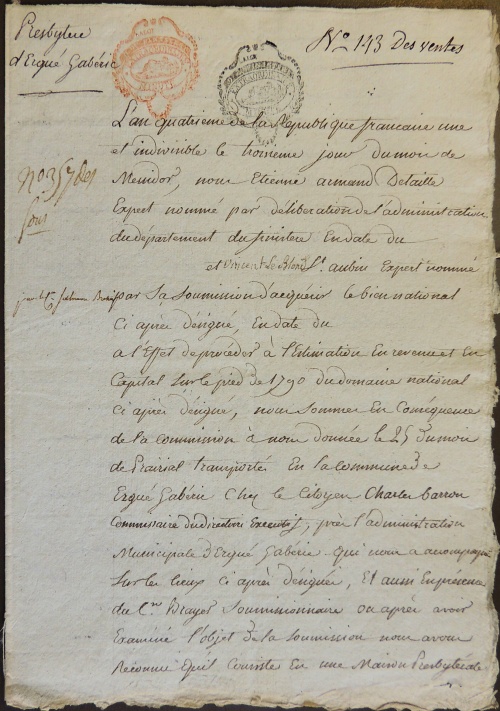 Presbytere
d'Ergué Gabéric
N° 143 Des ventes
L'an quatrieme de la Republique francaise une
et indivisible le troisieme jour du mois de
Messidor, nous Etienne armand Detaille
no. 357 des
Sous
Expert nommé par délibération de l'administration
du département du finistere En date du
et Vincent St. aubin Expert nommé
par Sa Soumission d'acquérir le bien national
Ci après désigné, En date du
a l'Effet de procéder à l'Estimation En revenu et En
Capital Sur le pied de 1790 du domaine national
Ci après désigné, nous Sommes En Conséquence
de la commission à nous donnée le 25 du mois
de Prairial transportés En la commune de
Ergué Gabéric Chez le Citoyen Charles Barron
Commissaire du directoire Executif, près l'administration
Municipale d'Ergué Gabéric qui nous a accompagné
Sur les lieux ci après désignés, Et aussi En présence
du Cen. Brayer Soumissionnaire ou après avoir
Examiné l'objet de la Soumission nous avons
Reconnu qu'il Consiste En une Maison Presbytérale